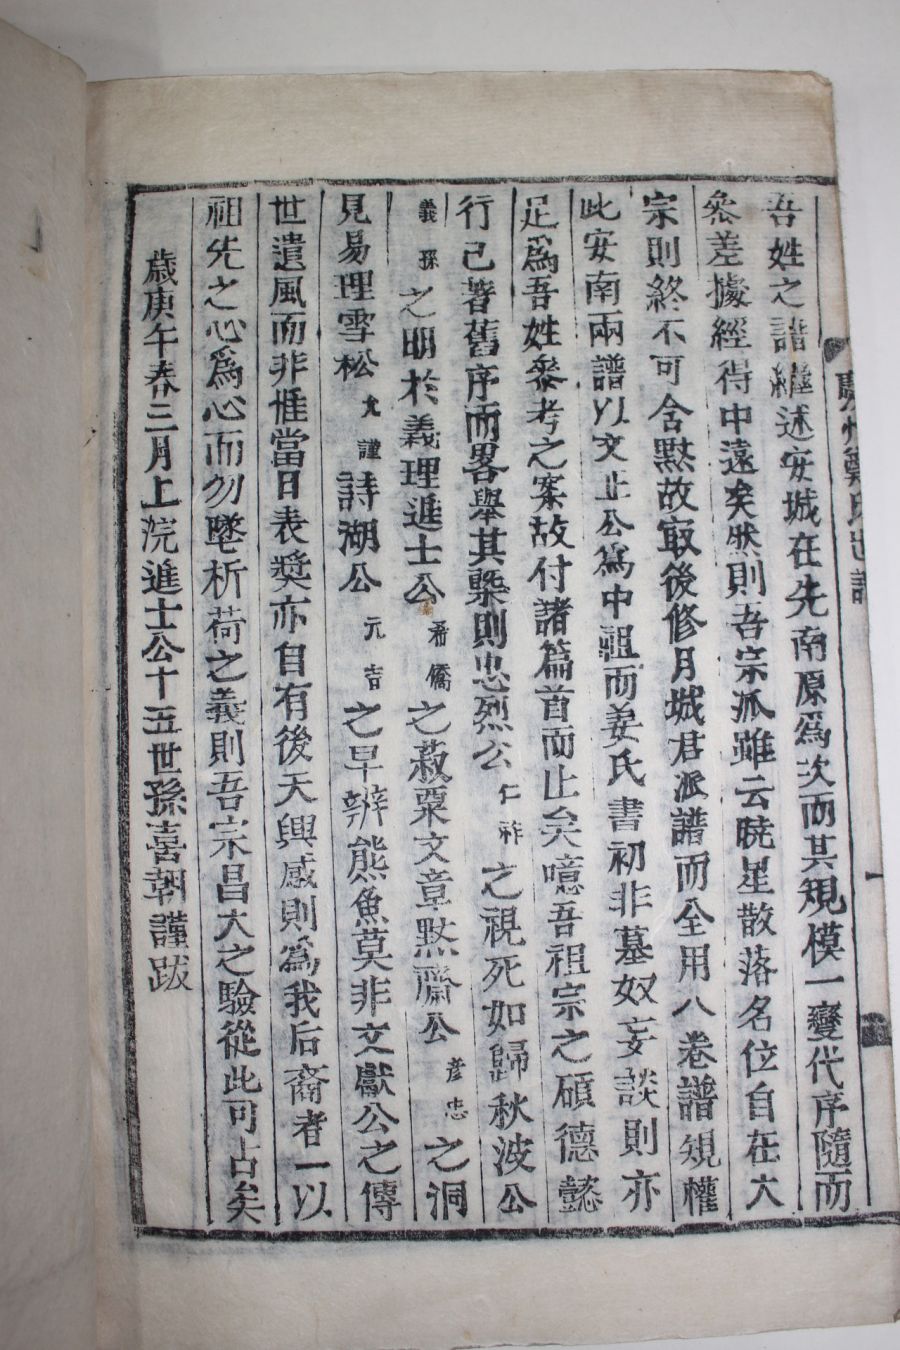 慶州鄭氏世譜
一
吾姓之譜繼述安城在先南原爲次而其規模一變代序隨而
叅差據經得中遠矣然則吾宗派雖云曉星散落名位自在大
宗則終不可含黙故㝡後修月城君派譜而全用八卷譜規權
此安南兩譜以文正公爲中祖而姜氏書初非墓奴妄談則亦
足爲吾姓叅考之案故付諸篇首而止矣噫吾祖宗之碩德懿
行已著舊序而畧舉其槩則忠烈公仁祚之視死如歸秋波公
義孫之明於義理進士公希僑之菽粟文章黙齋公彦忠之洞
見易理雪松允謹詩湖公元吉之早辨熊魚莫非文獻公之傳
世遺風而非惟當日表奬亦自有後天興感則爲我后裔者一以
祖先之心爲心而勿墜析荷之義則吾宗昌大之驗從此可占矣
歲庚午春三月上浣進士公十五世孫喜朝謹跋